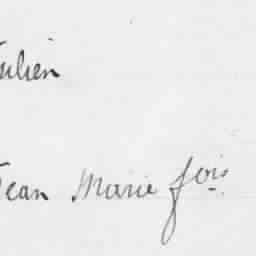 Julien
Jean Marie fois